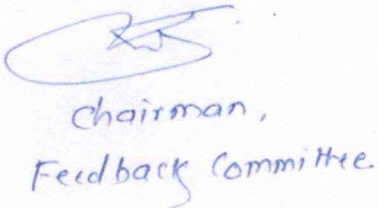 Chairman,
Feedback Committee.